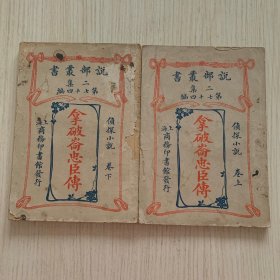 說部叢書
二集
第七十四編
偵探小說 卷上
拿破崙忠臣傳
上海商務印書館發行
說部叢書
二集
第七十四編
偵探小說 卷下
拿破崙忠臣傳
上海商務印書館發行